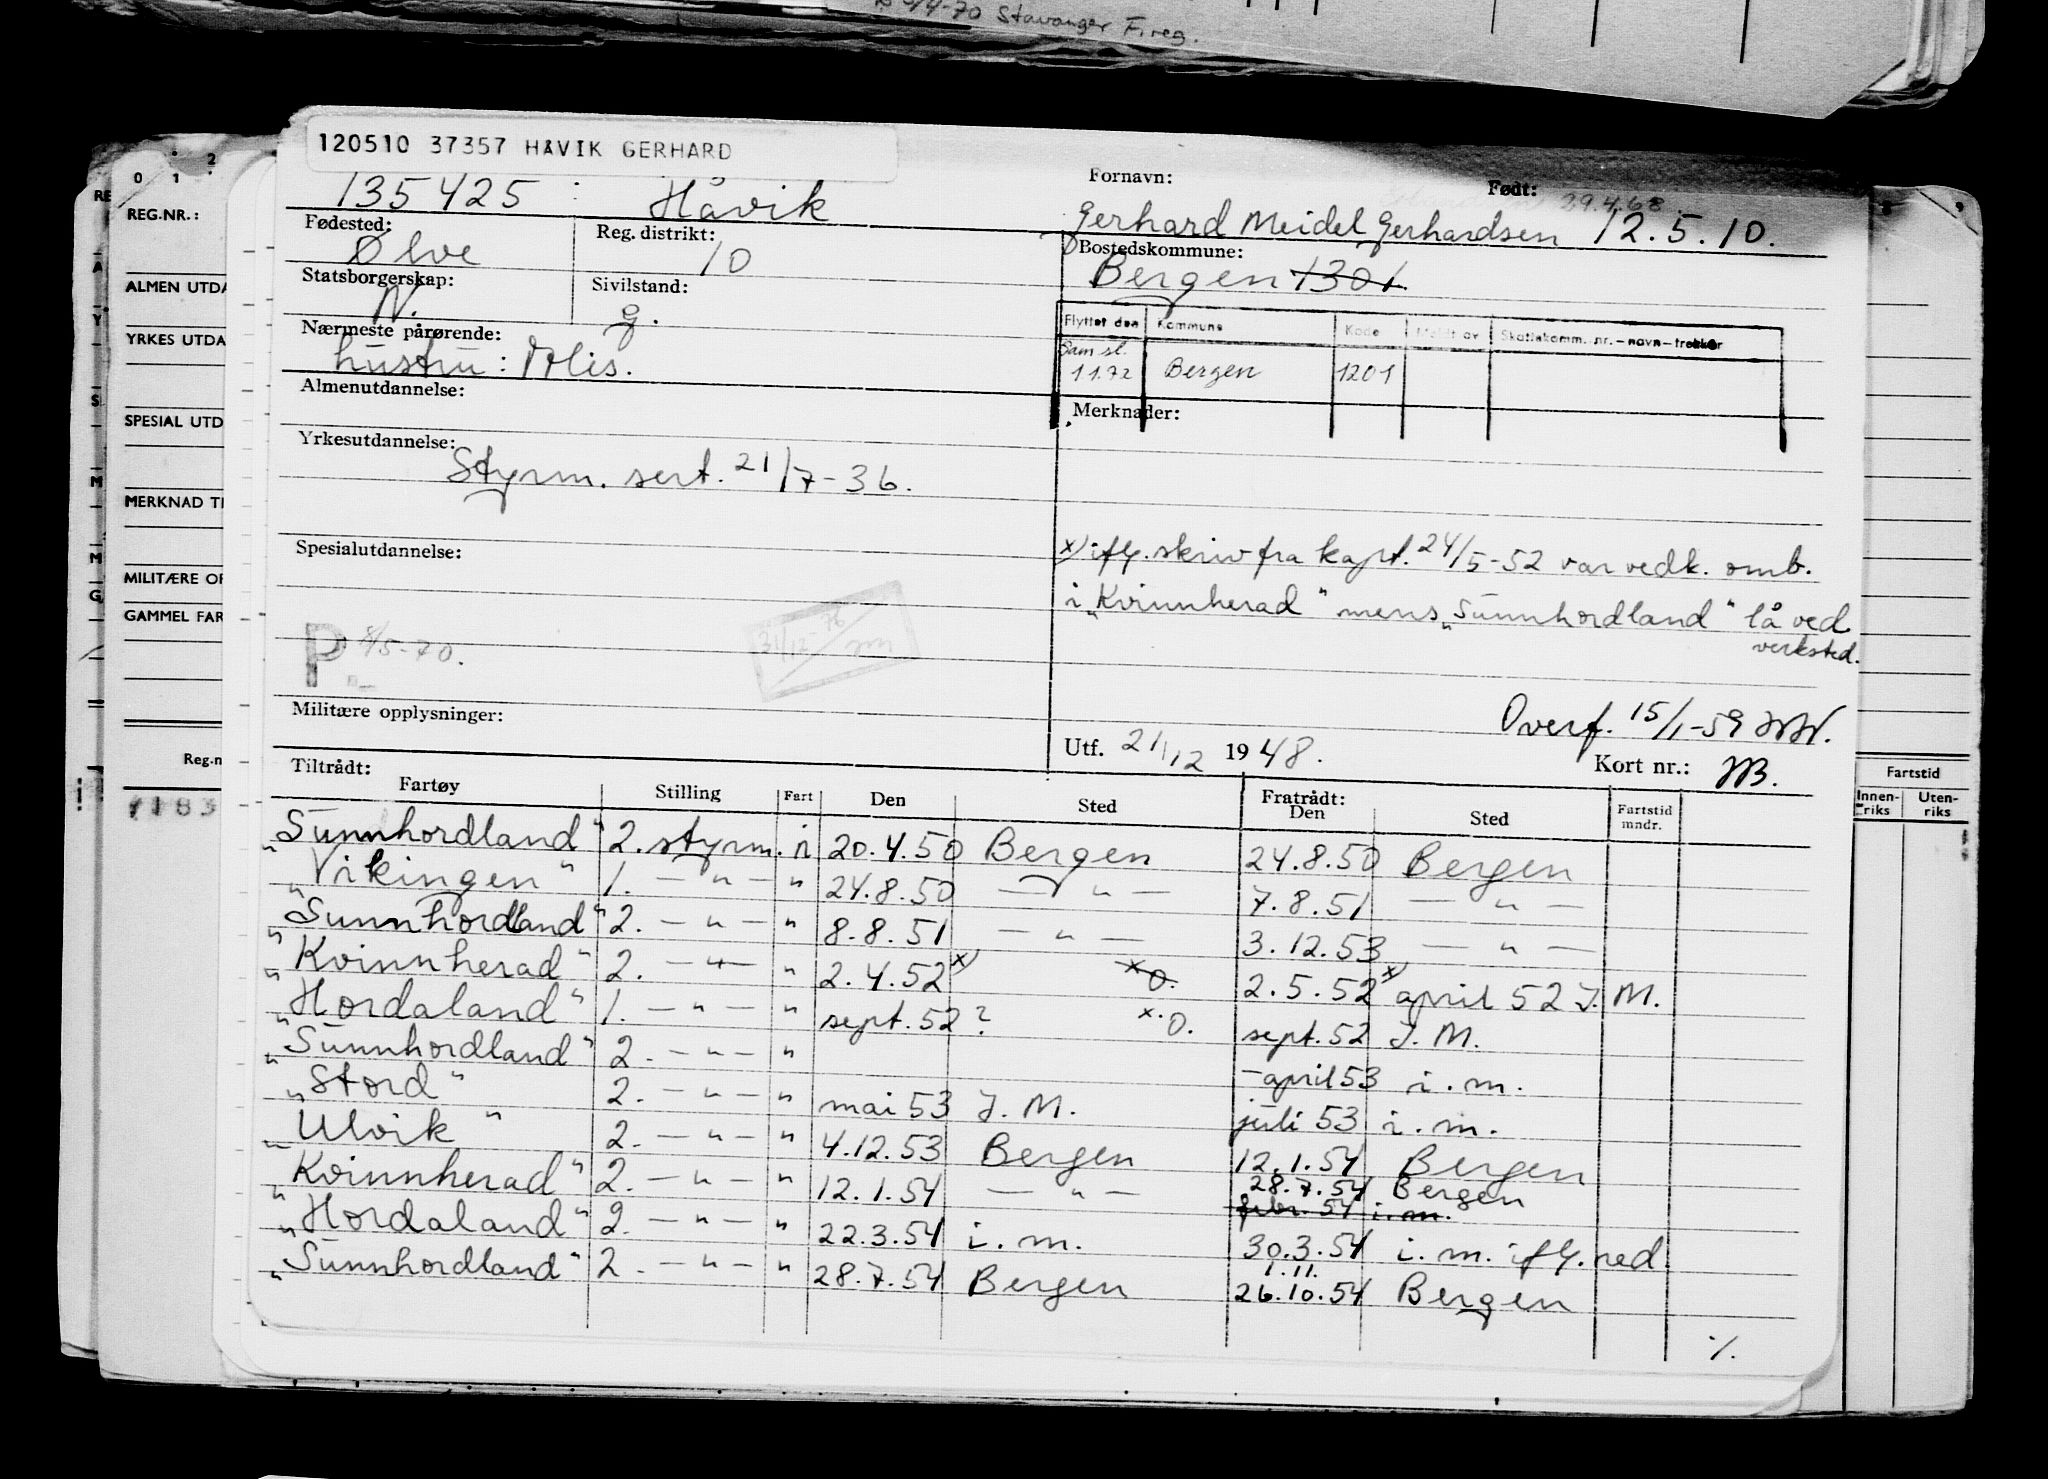 4-70 Stavanger F.reg.
120510 37357 HÅVIK GERHARD
0 1 2
REG.NR.:
ALMEN UTDA
YRKES UTDA
SPESIAL UTD
MERKNAD TI
MILITÆRE OP
GAMMEL FAR
Reg.n
Fartstid
Innen-riks Uten-riks
135425 Håvik
Fornavn: Født: 29.4.68
Gerhard Meidel Gerhardsen 12.5.10.
Fødested: Reg. distrikt: Bostedskommune:
Ølve 10 Bergen 1301
Statsborgerskap: Sivilstand:
N. g.
Flyttet den Kommune Kode Meldt av Skattekomm. nr.-navn-trekker
Sam.sl. 1.1.72 Bergen 1201
Nærmeste pårørende:
hustru:
Almenutdannelse: Merknader:
Yrkesutdannelse:
Styrm. sert. 21/7-36.
Spesialutdannelse:
x) iflg. skriv fra kapt. 24/5-52 var vedk. omb.
i "Kvinnherad" mens "Sunnhordland" lå ved
verksted.
P 8/5-70.
31/12-76
Militære opplysninger:
Overf. 15/1-59
Utf. 21/12 1948. Kort nr.:
Tiltrådt: Fratrådt:
Fartøy Stilling Fart Den Sted Den Sted Fartstid mndr.
"Sunnhordland" 2. styrm. i 20.4.50 Bergen 24.8.50 Bergen
"Vikingen" 1. — " — " 24.8.50 — " — 7.8.51 — " —
"Sunnhordland" 2. — " — " 8.8.51 — " — 3.12.53 — " —
"Kvinnherad" 2. — " — " 2.4.52 x) x O. 2.5.52 x) april 52 I. M.
"Hordaland" 1. — " — " sept. 52? x. O. sept. 52 I. M.
"Sunnhordland" 2. — " — " – april 53 i. m.
"Stord" 2. — " — " mai 53 I. M. juli 53 i. m.
"Ulvik" 2. — " — " 4.12.53 Bergen 12.1.54 Bergen
"Kvinnherad" 2. — " — " 12.1.54 — " — 28.7.54 Bergen
febr. 54 i. m.
"Hordaland" 2. — " — " 22.3.54 i. m. 30.3.54 i. m. iflg. red.
1.11.
"Sunnhordland" 2. — " — " 28.7.54 Bergen 26.10.54 Bergen
./.